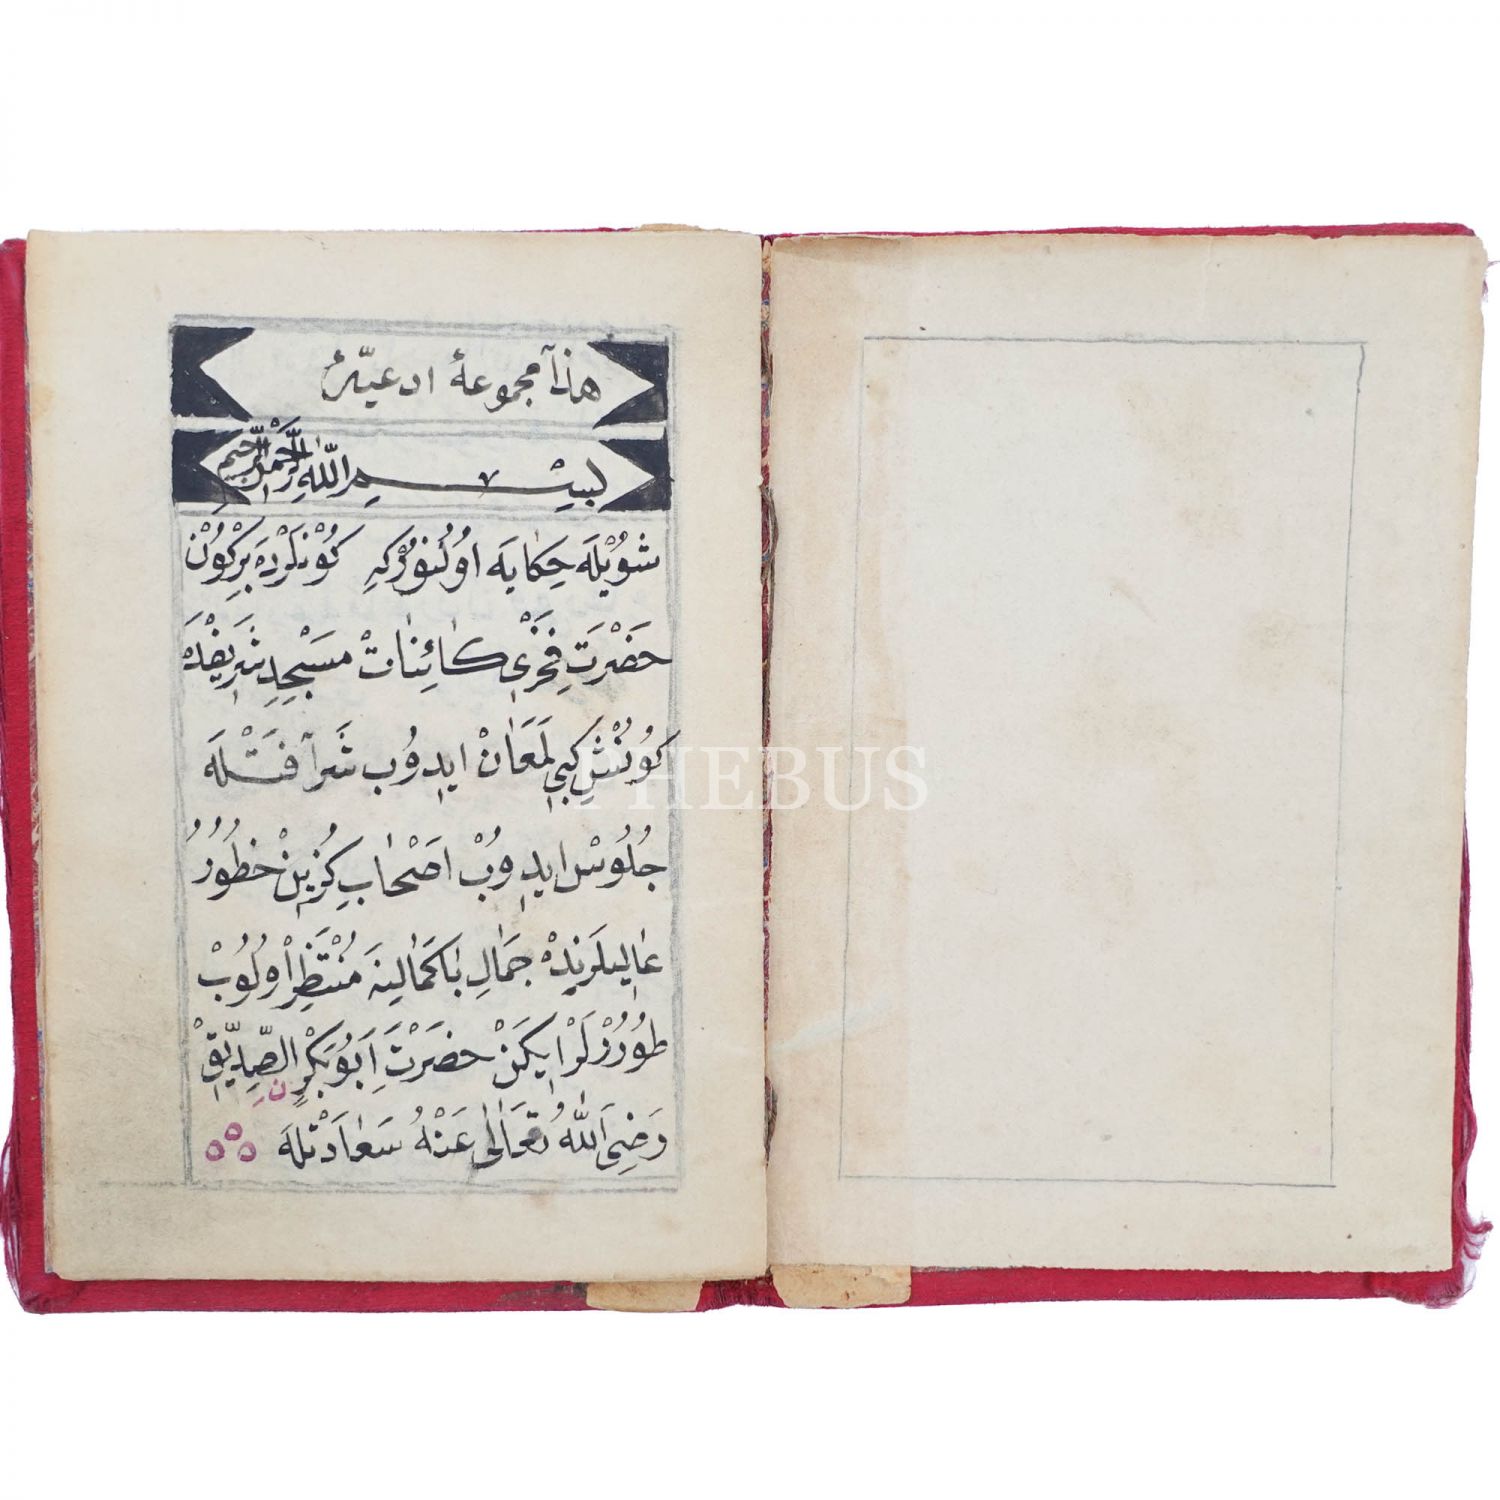 هذا مجموعۀ ادعیّۀ
بِسْمِ اللّٰهِ الرَّحْمٰنِ الرَّحِيمِ
شُويْلَه حِكَايَه اُولُنُورْكِه كُونْلَرْدَه بِرْكُونْ
حَضْرَتِ فَخْرِى كَائِنَاتْ مَسْجِدِ شَرِيفْدَه
كُونَشْ كِبِى لَمَعَانْ اِيدُوبْ شَرَافَتْلَه
جُلُوسْ اِيدُوبْ اَصْحَابِ كُزِينْ حُضُورُ
عَالِيلَرِينْدَه جَمَالِ بَاكَمَالِينَه مُنْتَظِرْ اُولُوبْ
طُورُرْلَرْ اِيكَنْ حَضْرَتِ اَبُوبَكْرِنِ الصِّدِّيقْ
رَضِىَ اللّٰهُ تَعَالٰى عَنْهُ سَعَادَتْلَه
PHEBUS